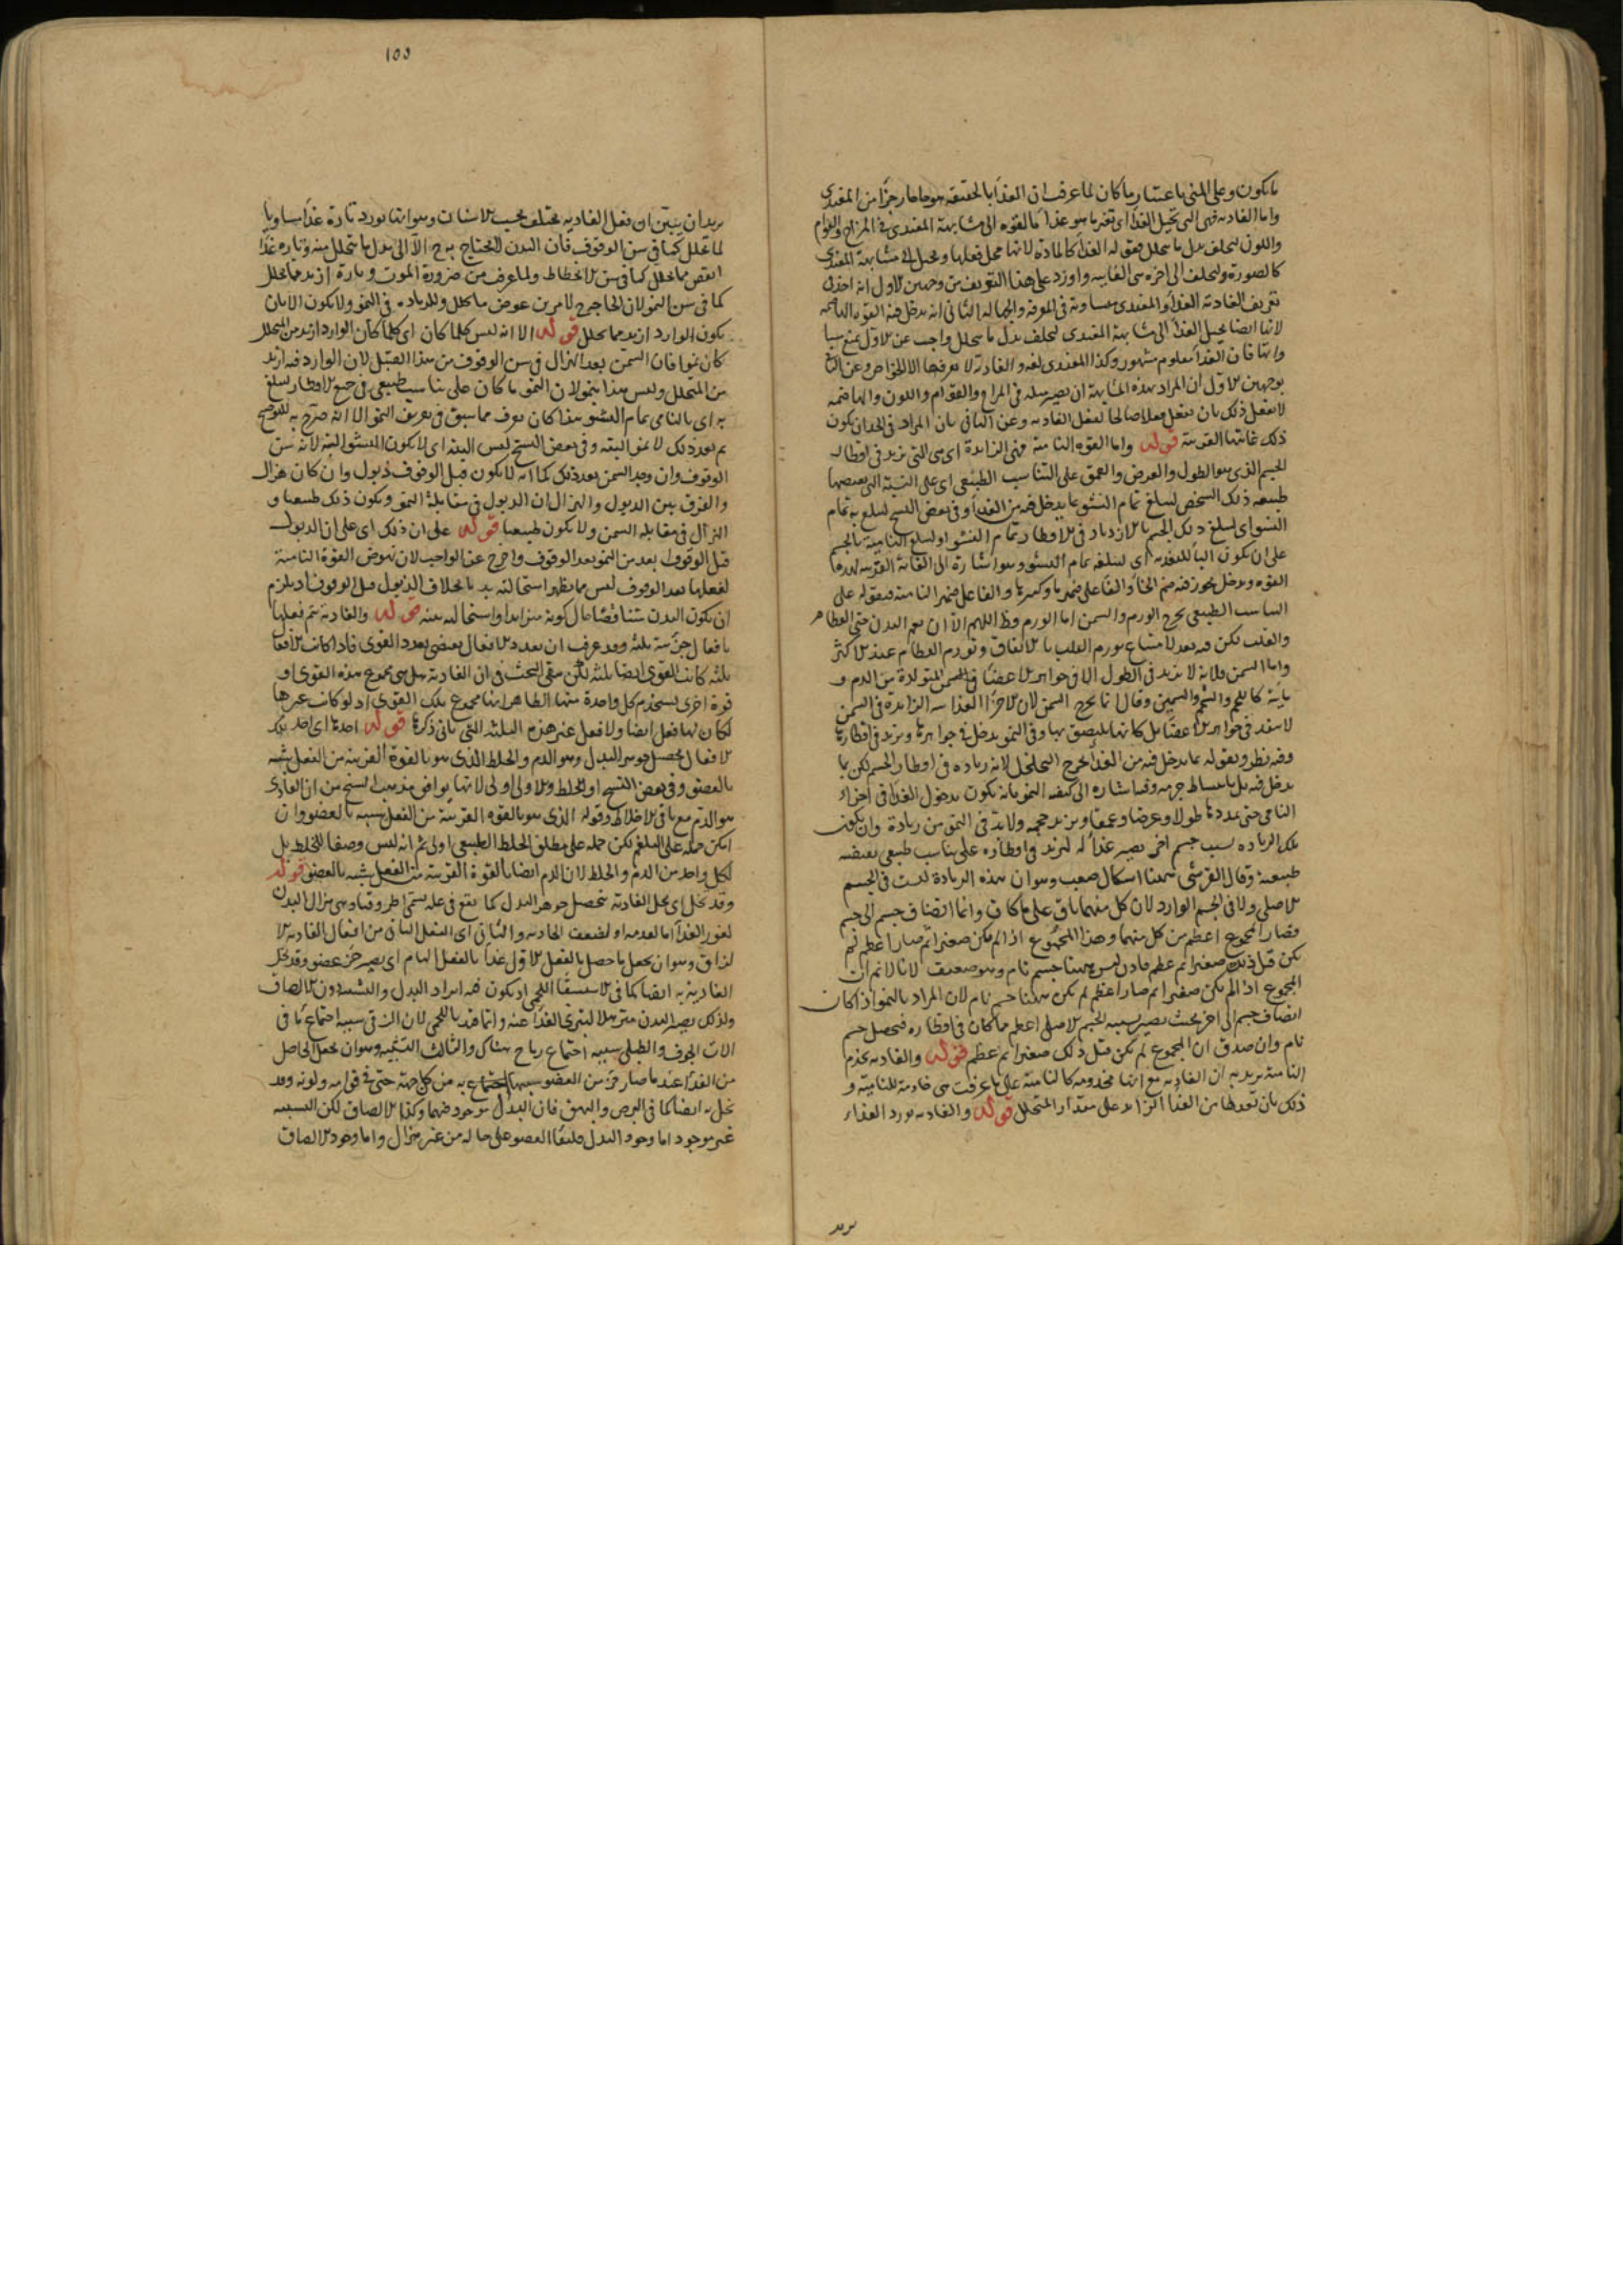 ما يكون وعلى المنى باعتبار ما كان لما عرفت ان الغذا بالحقيقة هو ما صار جزا من المغتدى
واما الغاديه فهى التى تحيل الغذا اى تغير ما هو غذا بالقوه الى مشابهة المغتدى فى المزاج والقوام
واللون ليخلف بدل ما يتحلل فقوله الغذا كالمادة لانها محل فعلها وتحيل الى مشابهة المغتدى
كالصورة وليخلف الى اخره هى الغاييه واورد على هذا التعريف من وجهين الاول انه اخذ فى
تعريف الغاديه الغذا والمغتدى مساوية فى المعرفه والجهاله الثانى انه يدخل فيه القوه الناميه
لانها ايضا تحيل الغذا الى مشابهة المغتدى ليخلف بدل ما يتحلل واجيب عن الاول بمنع
فان الغذا معلوم مشهور وكذا المغتدى لغه والغاديه لا يعرفها الا الخواص وعن الثانى
بوجهين الاول ان المراد بهذه المشابهة ان يصير مثله فى المزاج والقوام واللون والهاضمه
لا تفعل ذلك بان تفعل فعلا صالحا لفعل الغاديه وعن الثانى بان المراد فى الحد ان يكون
ذلك غايتها القريبة قوله واما القوه النامية فهى الزايدة اى هى التى تزيد فى اقطار
الجسم الذى هو الطول والعرض والعمق على التناسب الطبيعى اى على النسبة التى يقتضيها
طبيعه ذلك الشخص ليبلغ تمام النشو بما يدخل فيه من الغذا وفى بعض النسخ ليبلغ به تمام
النشو اى ليبلغ ذلك الجسم بالازدياد فى الاقطار تمام النشو او ليبلغ النامية بالجسم
على ان يكون البا للتعديه اى لتبلغه تمام النشو وهو اشارة الى الغاية القريبه لهذه
القوه
التناسب الطبيعى يخرج الورم والسمن اما الورم فظ اللهم الا ان يعم البدن حتى العظام
والقلب لكن فيه بعد لامتناع تورم القلب بالاتفاق وتورم العظام عند الاكثر
واما السمن فلانه لا يزيد فى الطول اذ السمن المتولدة من الدم و
مايته كاللحم والشحم والسمين وقال انما يخرج السمن لان الاجزا الغذاييه الزايدة فى السمن
لا تنفذ فى جواهر الاعضا بل كانها تلتصق بها وفى النمو يدخل فى جواهرها وتزيد فى اقطارها
وفيه نظر وبقوله بما يدخل فيه من الغذا يخرج التخلخل لانه زياده فى اقطار الجسم لكن لا بما
يدخل فيه بل بانبساط جرمه وفيه اشاره الى كيفيه النمو بانه يكون بدخول الغذا فى اجزاء
النامى حتى يمددها طولا وعرضا وعمقا ويزيد حجمه ولا بد فى النمو من زيادة وان يكون
تلك الزياده بسبب جسم اخر يصير غذا له لتزيد فى اقطاره على تناسب طبيعى يقتضيه
طبيعته وقال القرشى ههنا اشكال صعب وهو ان هذه الزيادة ليست فى الجسم
الاصلى ولا فى الجسم الوارد لان كل منهما باق على ما كان وانما انضاف جسم الى جسم
فصار المجموع اعظم من كل منهما وهذا المجموع اذ لم يكن صغيرا ثم صار اعظم لم
يكن قبل ذلك صغيرا ثم عظم فاذن ليس ههنا جسم نام وهو ضعيف لانا لا نم ان
المجموع اذا لم يكن صغيرا ثم صار اعظم لم يكن ههنا جسم نام لان المراد بالنمو اذا كان
انضاف جسم الى اخر بحيث يصير بسببه الجسم الاصلى اعظم مما كان فى اقطاره فيحصل جسم
نام وان صدق ان المجموع لم يكن قبل ذلك صغيرا ثم عظم قوله والغاديه تخدم
النامية يريد به ان الغاديه مع انها مخدومه كالنامية على ما عرفت هى خادمة للنامية و
ذلك بان تعد لها من الغذا الزايد على مقدار المتحلل قوله والغاديه تورد الغذاء
يريد
100
يريد ان يبين ان فعل الغاديه مختلف بحسب الاسنان وهو انها تورد تارة غذا مساويا
لما تحلل كما فى سن الوقوف فان البدن لا يحتاج به ح الا الى بدل ما يتحلل منه وتاره غذا
انقص مما تحلل كما فى سن الانحطاط ولما عرف من ضرورة الموت وتارة ازيد مما تحلل
كما فى سن النمو لان الحاجة لامرين عوض ما تحلل وللزياده فى النمو ولا يكون الا بان
يكون الوارد ازيد مما تحلل قوله الا انه ليس كلما كان اى كلما كان الوارد ازيد من المتحلل
كان نموا فان السمن بعد الهزال فى سن الوقوف من هذا القبيل لان الوارد فيه ازيد
من المتحلل وليس هذا بنمو لان النمو ما كان على تناسب طبيعى فى جميع الاقطار ليبلغ
به اى بالنامى تمام النشو هذا كان يعرف مما سبق فى تعريف النمو الا انه صرح به للتوضيح
ثم بعد ذلك لا نمو البته وفى بعض النسخ ليس البته اى لا يكون النشو البته لانه سن
الوقوف وان وجد السمن بعد ذلك كما انه لا يكون قبل الوقوف ذبول وان كان هزال
والفرق بين الذبول والهزال ان الذبول فى مقابلة النمو ويكون ذلك طبيعيا و
الهزال فى مقابله السمن ولا يكون طبيعيا قوله على ان ذلك اى على ان الذبول
قبل الوقوف ابعد من النمو بعد الوقوف واخرج عن الواجب لان نهوض القوة النامية
لفعلها بعد الوقوف ليس مما يظهر استحالته بخلاف الذبول قبل الوقوف اذ يلزم
ان يكون البدن متناقصا حال كونه متزايدا واستحالته بينه قوله والغاديه يتم فعلها
بافعال جزئية ثلثه وقد عرف ان تعدد الافعال يقتضى تعدد القوى فاذا كانت الافعال
ثلثه كانت القوى ايضا ثلثه لكن بقى البحث فى ان الغاديه هل هى مجموع هذه القوى او
قوة اخرى يستخدم كل واحدة منها الظاهر انها مجموع تلك القوى اذ لو كانت غيرها
لكان لها فعل ايضا ولا فعل غير هذه الثلثه التى ياتى ذكرها قوله احدها اى احد تلك
الافعال تحصيل جوهر البدل وهو الدم والخلط الذى هو بالقوة القريبه من الفعل شبيه
بالعضو وفى بعض النسخ او الخلط والاولى اولى لانها يوافق مذهب الشيخ من ان الغاذى
هو الدم مع باقى الاخلاط وقوله الذى هو بالقوه القريبة من الفعل شبيه بالعضو وان
امكن حمله على البلغم لكن حمله على مطلق الخلط الطبيعى اولى ثم انه ليس وصفا للخلط بل
لكل واحد من الدم والخلط لان الدم ايضا بالقوة القريبه من الفعل شبيه بالعضو قوله
وقد تخل اى تخل الغاديه بتحصيل جوهر البدل كما يقع فى علة تسمى اطروفيا وهى هزال البدن
لعوز الغذا اما لعدمه او لضعف الجاذبه والثانى اى الفعل الثانى من افعال الغاديه الا
لزاق وهو ان يجعل ما حصل بالفعل الاول غذا بالفعل التام اى يصير جز عضو وقد تخل
الغاديه به ايضا كما فى الاستسقا اللحمى اذ يكون فيه ايراد البدل والتشبيه دون الالصاق
ولذلك يصير البدن مترهلا لتبرى الغذا عنه وانما قيد باللحمى لان الزقى سببه اجتماع ما فى
الات الجوف والطبلى سببه اجتماع رياح هناك والثالث التشبيه وهو ان يجعل الحاصل
من الغذا عند ما صار جزا من العضو شبيها به من كل جهة حتى فى قوامه ولونه وقد
تخل به ايضا كما فى البرص والبهق فان البدل موجود فيهما وكذا الالصاق لكن التشبيه
غير موجود اما وجود البدل فلبقا العضو على حاله من غير هزال واما وجود الالصاق